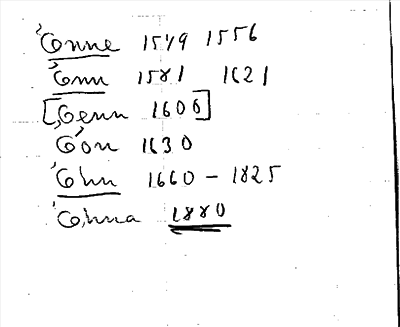 Önne 1549 1556
Önn 1581 1621
[Oenn 1606]
Öón 1630
Öhn 1660 - 1825
Öhna 1880